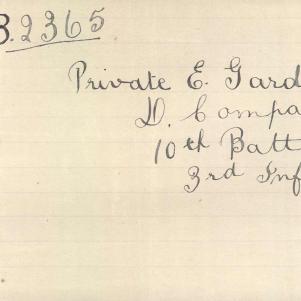 B.2365
Private E. Gard
D. Compa
10th Batt
3rd Inf